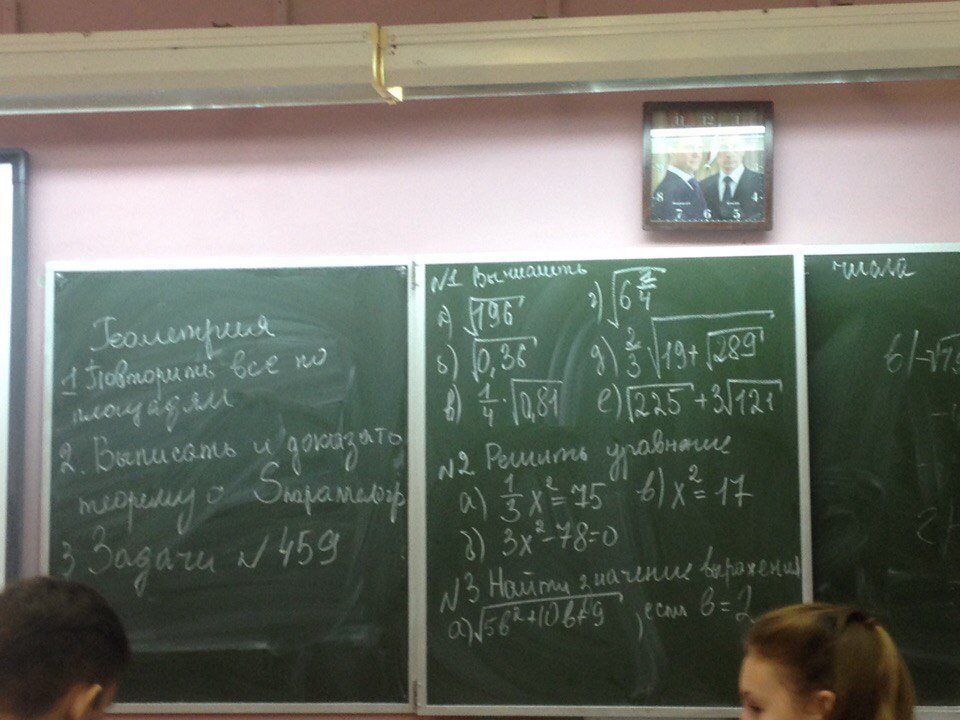 Геометрия
1 Повторить все по
площадям
2. Выписать и доказать
теорему о Sпараллелогр
3 Задачи №459
№1 Вычислить
а) √196
б) √0,36
в) 1/4 · √0,81
г) √6 1/4
д) 2/3 √19+√289
е) √225 + 3√121
№2 Решить уравнение
а) 1/3 x² = 75
в) x² = 17
б) 3x² - 78 = 0
№3 Найти значение выражения
а) √5в² + 10в + 9 , если в = 2
числа